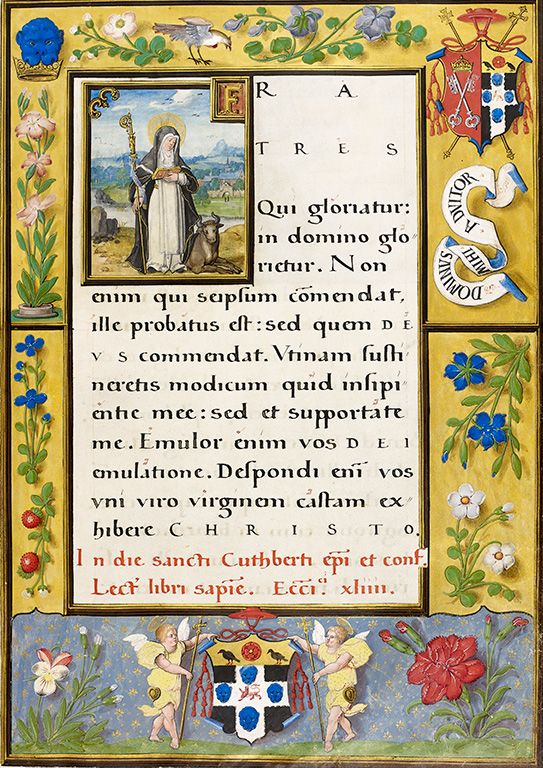 F R A
T R E S
Qui gloriatur:
in domino glo
rietur. Non
enim qui seipsum cōmendat,
ille probatus est: sed quem D E
V S commendat. Vtinam susti
neretis modicum quid insipi
entie mee: sed et supportate
me. Emulor enim vos D E I
emulatione. Despondi enī vos
vni viro virginem castam ex
hibere C H R I S T O.
In die sancti Cuthberti epī et conf.
Lect libri sapiē. Ecci. xliiii.
DOMINVS MIHI ADIVTOR